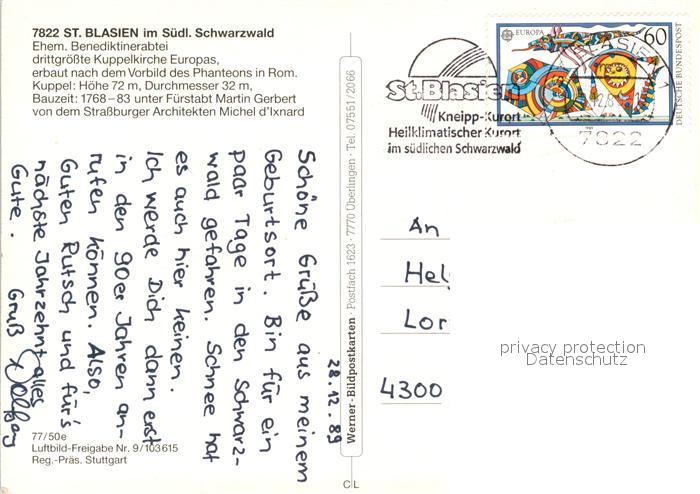 7822 ST. BLASIEN im Südl. Schwarzwald
Ehem. Benediktinerabtei
drittgrößte Kuppelkirche Europas,
erbaut nach dem Vorbild des Phanteons in Rom.
Kuppel: Höhe 72 m, Durchmesser 32 m,
Bauzeit: 1768–83 unter Fürstabt Martin Gerbert
von dem Straßburger Architekten Michel d'Ixnard
28.12.89
Schöne Grüße aus meinem
Geburtsort. Bin für ein
paar Tage in den Schwarz-
wald gefahren. Schnee hat
es auch hier keinen.
Ich werde Dich dann erst
in den 90er Jahren an-
rufen können. Also,
Guten Rutsch und für's
nächste Jahrzehnt alles
Gute. Gruß
77/50e
Luftbild-Freigabe Nr. 9/103615
Reg.-Präs. Stuttgart
Werner-Bildpostkarten · Postfach 1623 · 7770 Überlingen · Tel. 07551/2066
CL
St. Blasien
Kneipp-Kurort
Heilklimatischer Kurort
im südlichen Schwarzwald
EUROPA
60
DEUTSCHE BUNDESPOST
7822
An
Hel
Lor
4300
privacy protection
Datenschutz